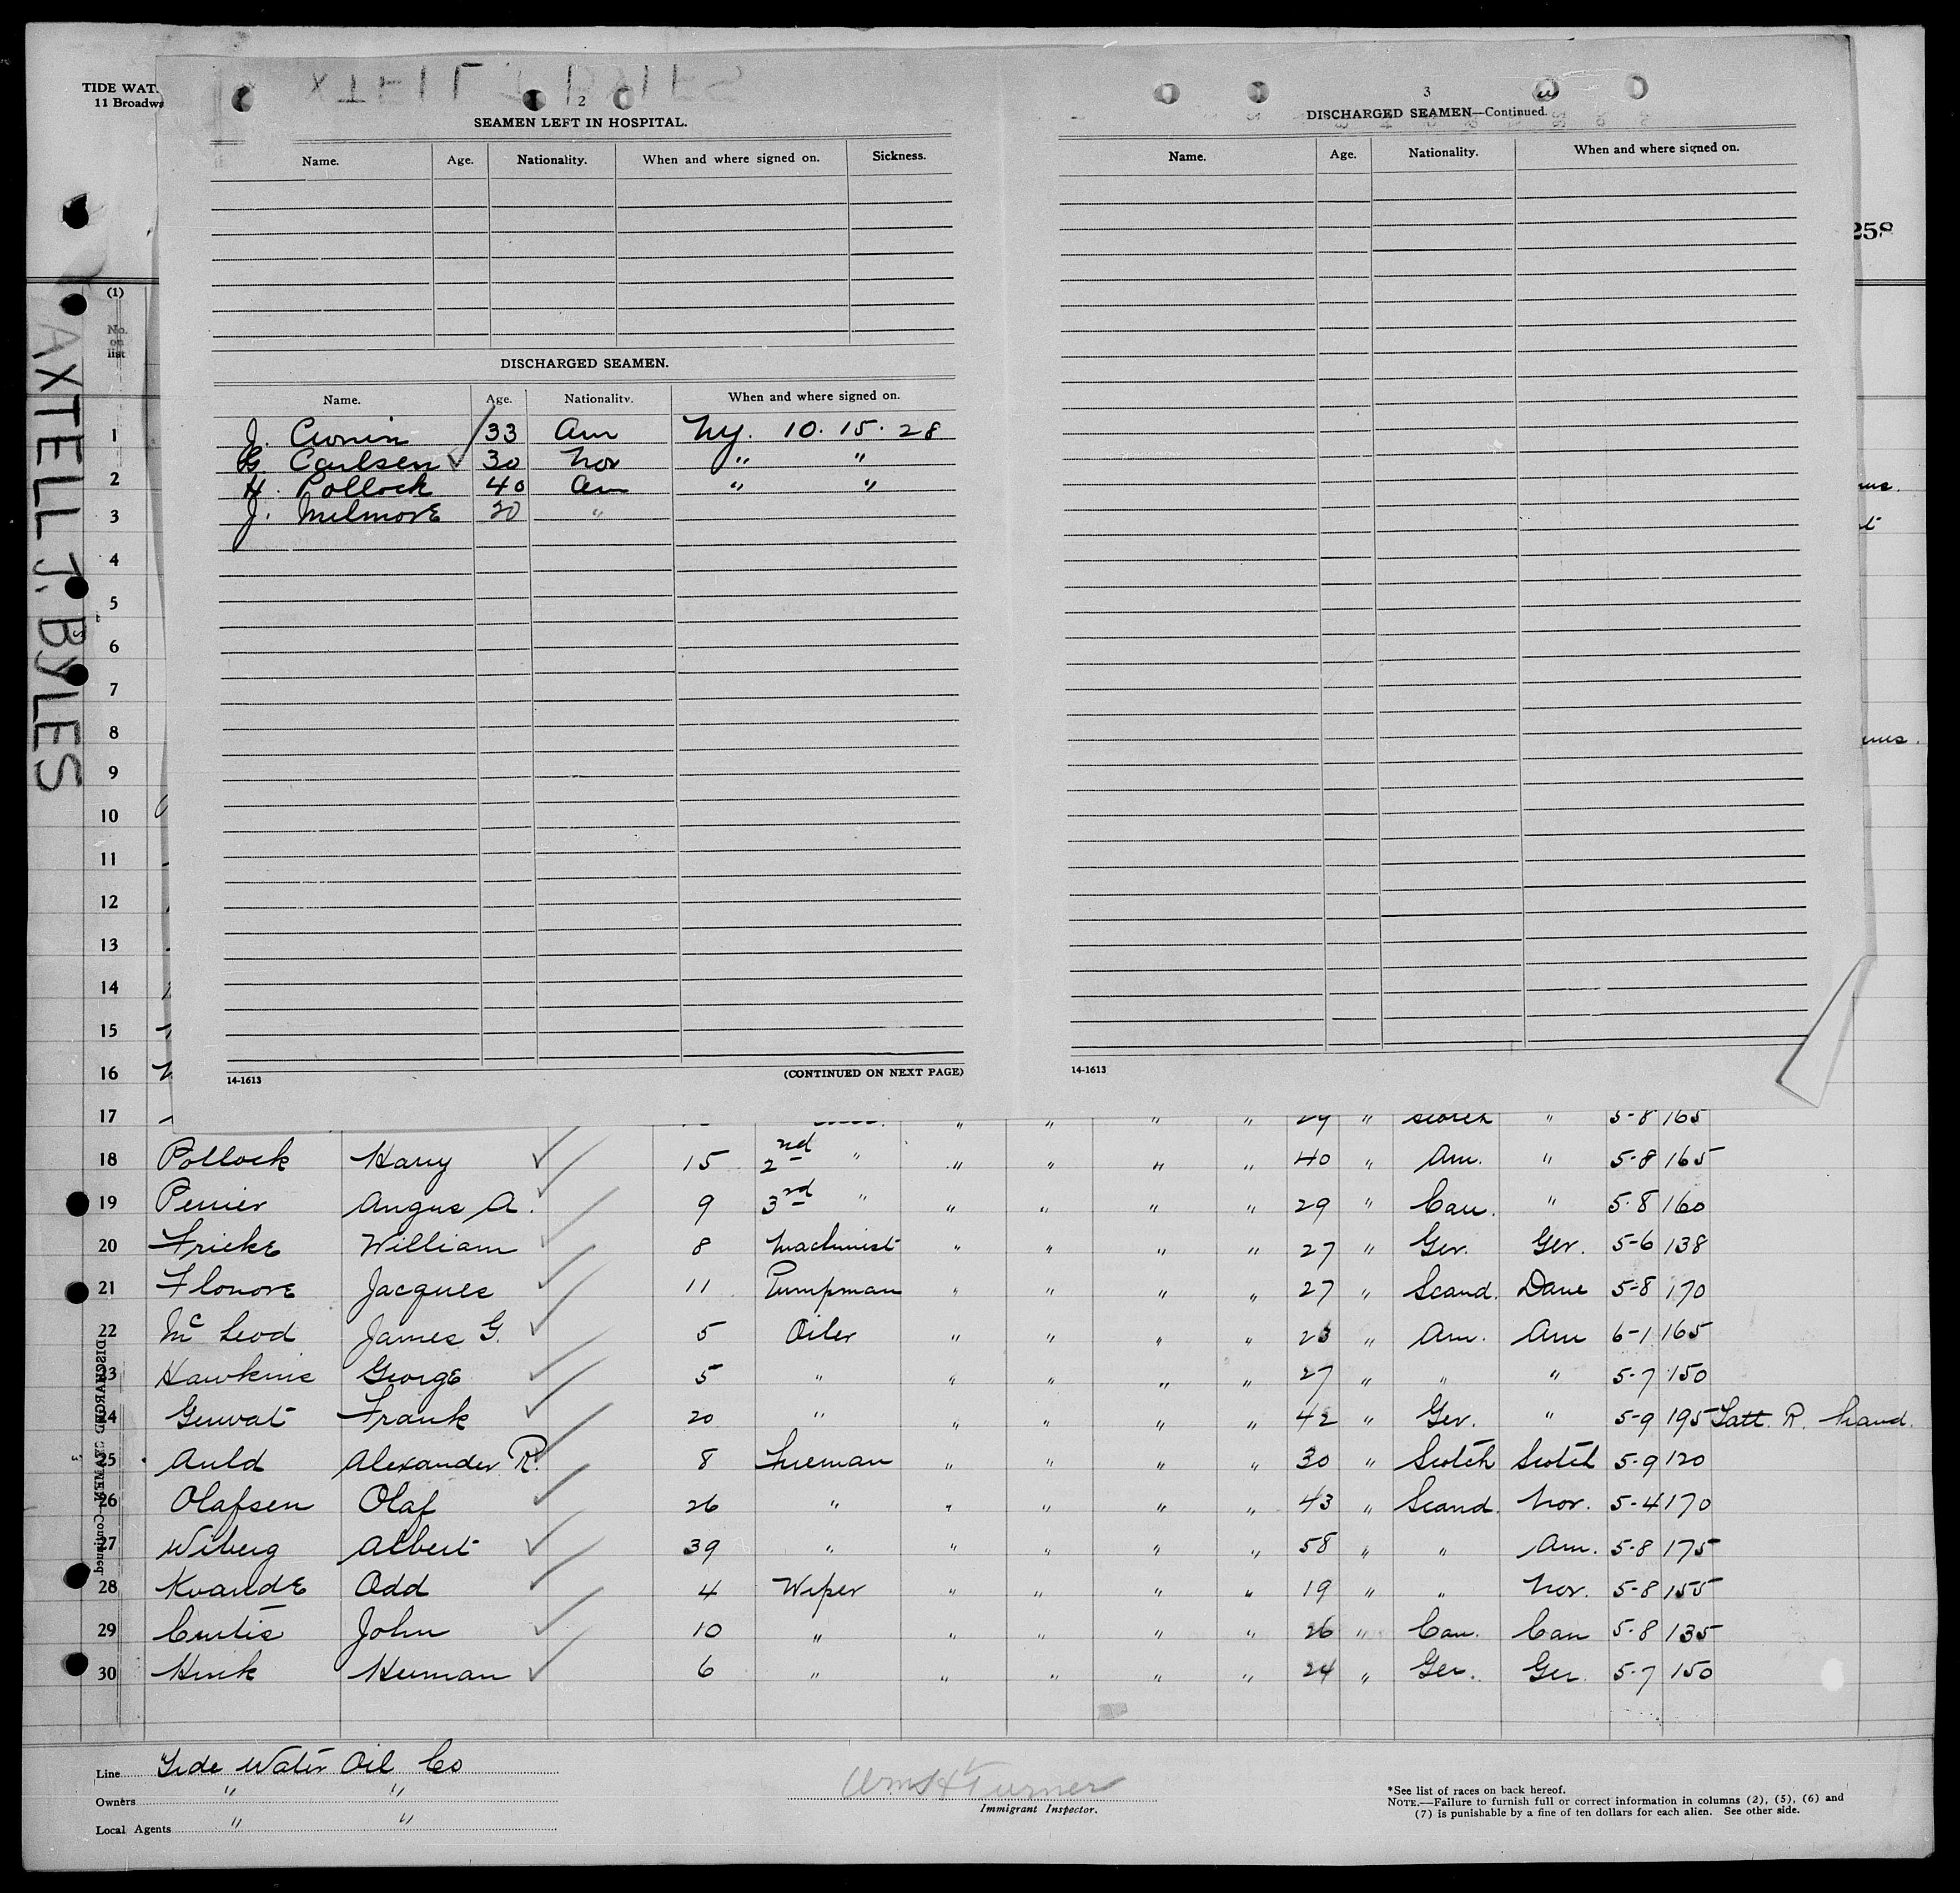 TIDE WAT
11 Broadwa
258
AXTELL J. BYLES
2
SEAMEN LEFT IN HOSPITAL.
Name. Age. Nationality. When and where signed on. Sickness.
DISCHARGED SEAMEN.
Name. Age. Nationality. When and where signed on.
J. Cronin 33 Am N.Y. 10. 15. 28
G. Carlsen 30 Nor " "
H. Pollock 40 Am " "
J. Milmore 20 "
14-1613 (CONTINUED ON NEXT PAGE)
3
DISCHARGED SEAMEN—Continued.
Name. Age. Nationality. When and where signed on.
14-1613
(1)
No. on list
1
2
3
4
5
6
7
8
9
10
11
12
13
14
15
16
17 " " " " 29 " Scotch " 5-8 165
18 Pollock Harry 15 2nd " " " " " 40 " Am. " 5-8 165
19 Perrier Angus A. 9 3rd " " " " " 29 " Can. " 5-8 160
20 Fricke William 8 Machinist " " " " 27 " Ger. Ger. 5-6 138
21 Flonore Jacques 11 Pumpman " " " " 27 " Scand. Dane 5-8 170
22 McLeod James G. 5 Oiler " " " " 23 " Am. Am 6-1 165
23 Hawkins George 5 " " " " " 27 " " " 5-7 150
24 Gerwat Frank 20 " " " " " 42 " Ger. " 5-9 195 Tatt. R. hand.
25 Auld Alexander R. 8 Fireman " " " " 30 " Scotch Scotch 5-9 120
26 Olafsen Olaf 26 " " " " " 43 " Scand. Nor. 5-4 170
27 Wiberg Albert 39 " " " " " 58 " " Am. 5-8 175
28 Kvande Odd 4 Wiper " " " " 19 " " Nor. 5-8 155
29 Curtis John 10 " " " " " 26 " Can. Can 5-8 135
30 Henk Herman 6 " " " " " 24 " Ger. Ger. 5-7 150
DISCHARGED SEAMEN—Continued.
Line Tide Water Oil Co
Owners " "
Local Agents " "
Wm H Turner
Immigrant Inspector.
*See list of races on back hereof.
NOTE.—Failure to furnish full or correct information in columns (2), (5), (6) and
(7) is punishable by a fine of ten dollars for each alien. See other side.